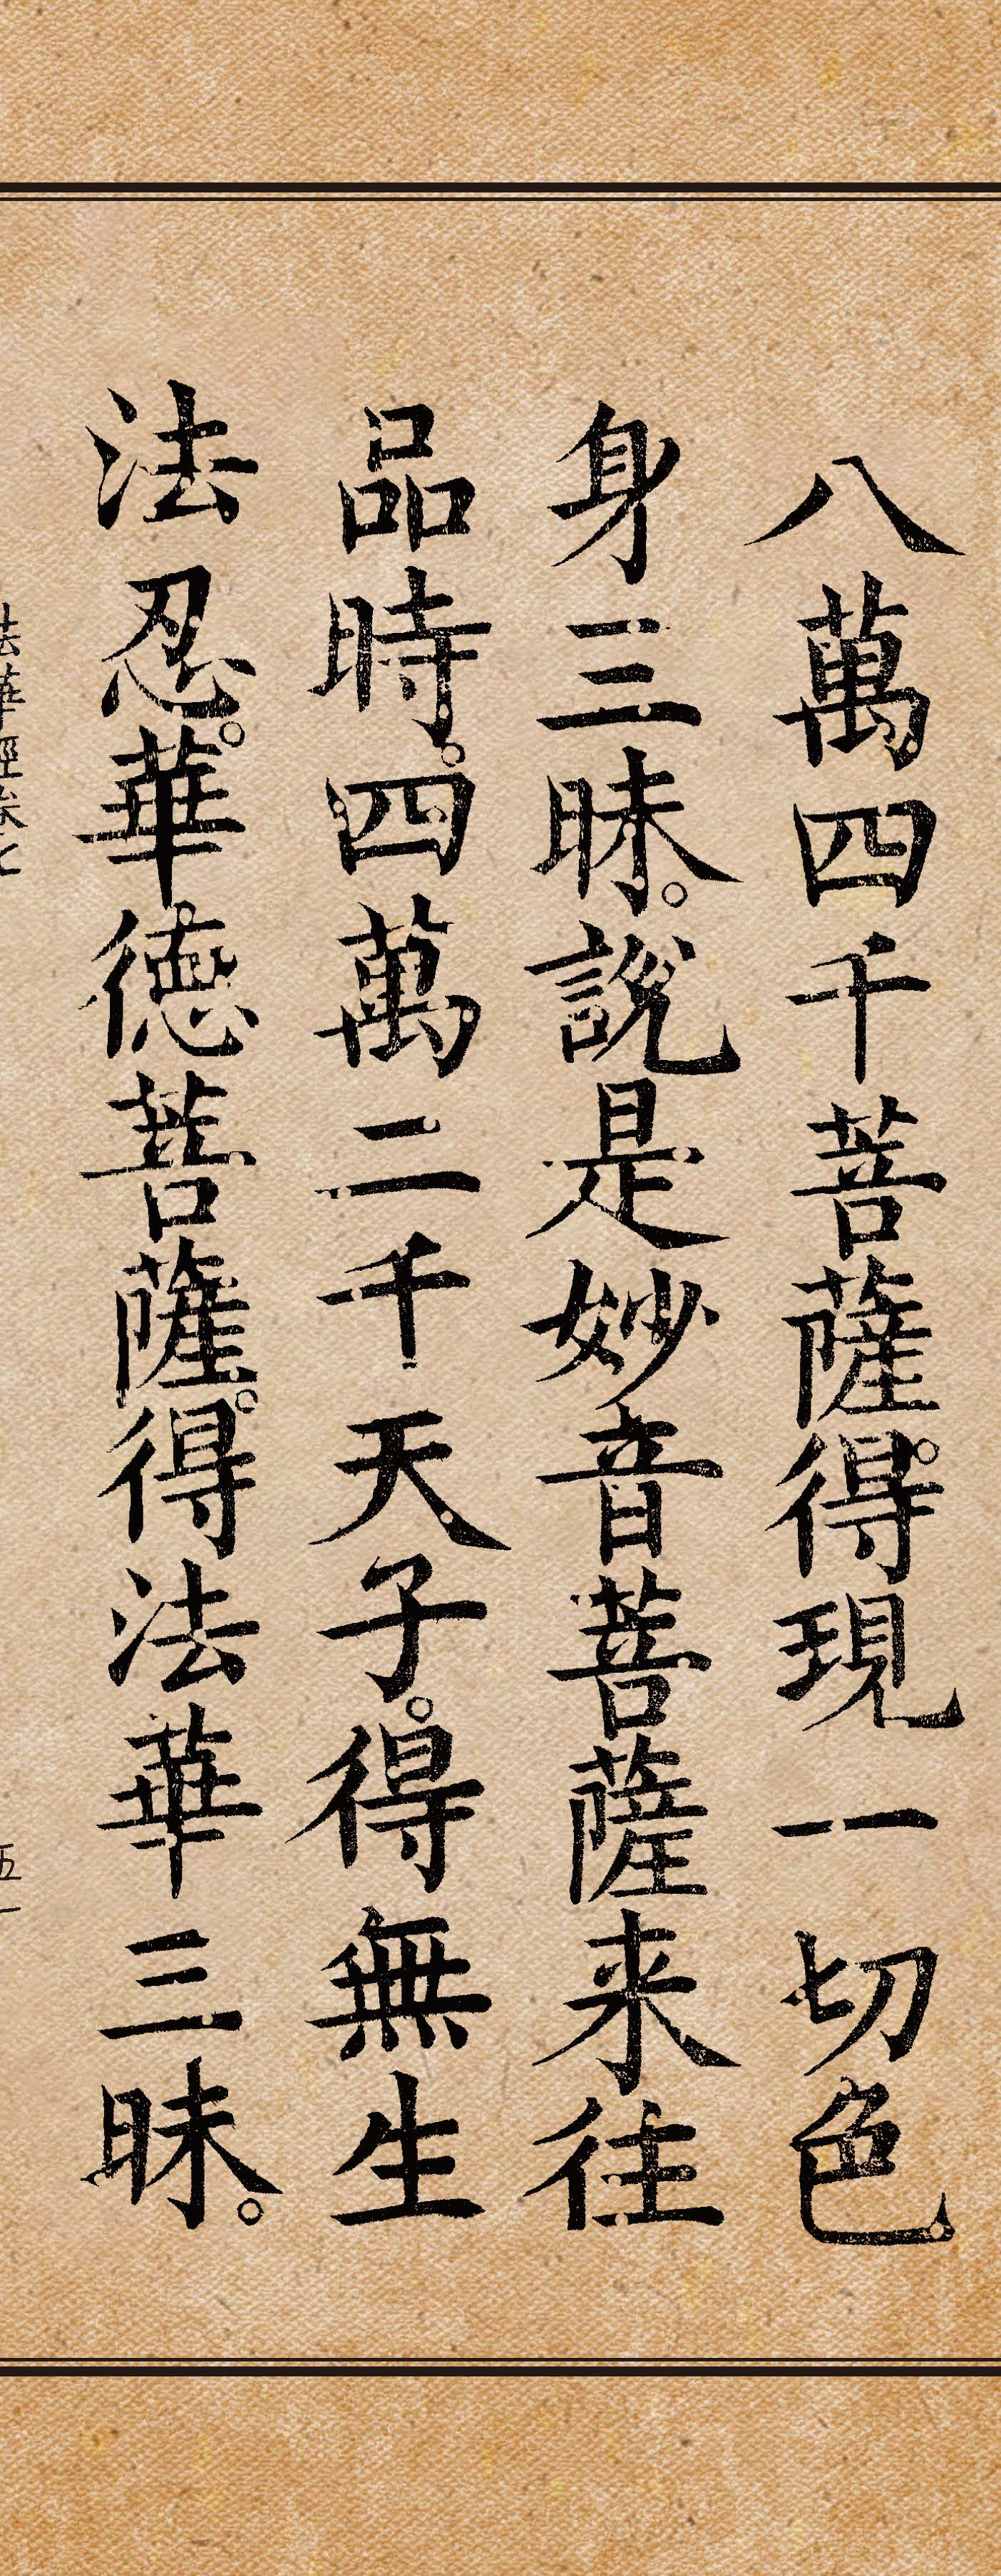 八萬四千菩薩。得現一切色
身三昧。說是妙音菩薩来往
品時。四萬二千天子。得無生
法忍。華德菩薩。得法華三昧。